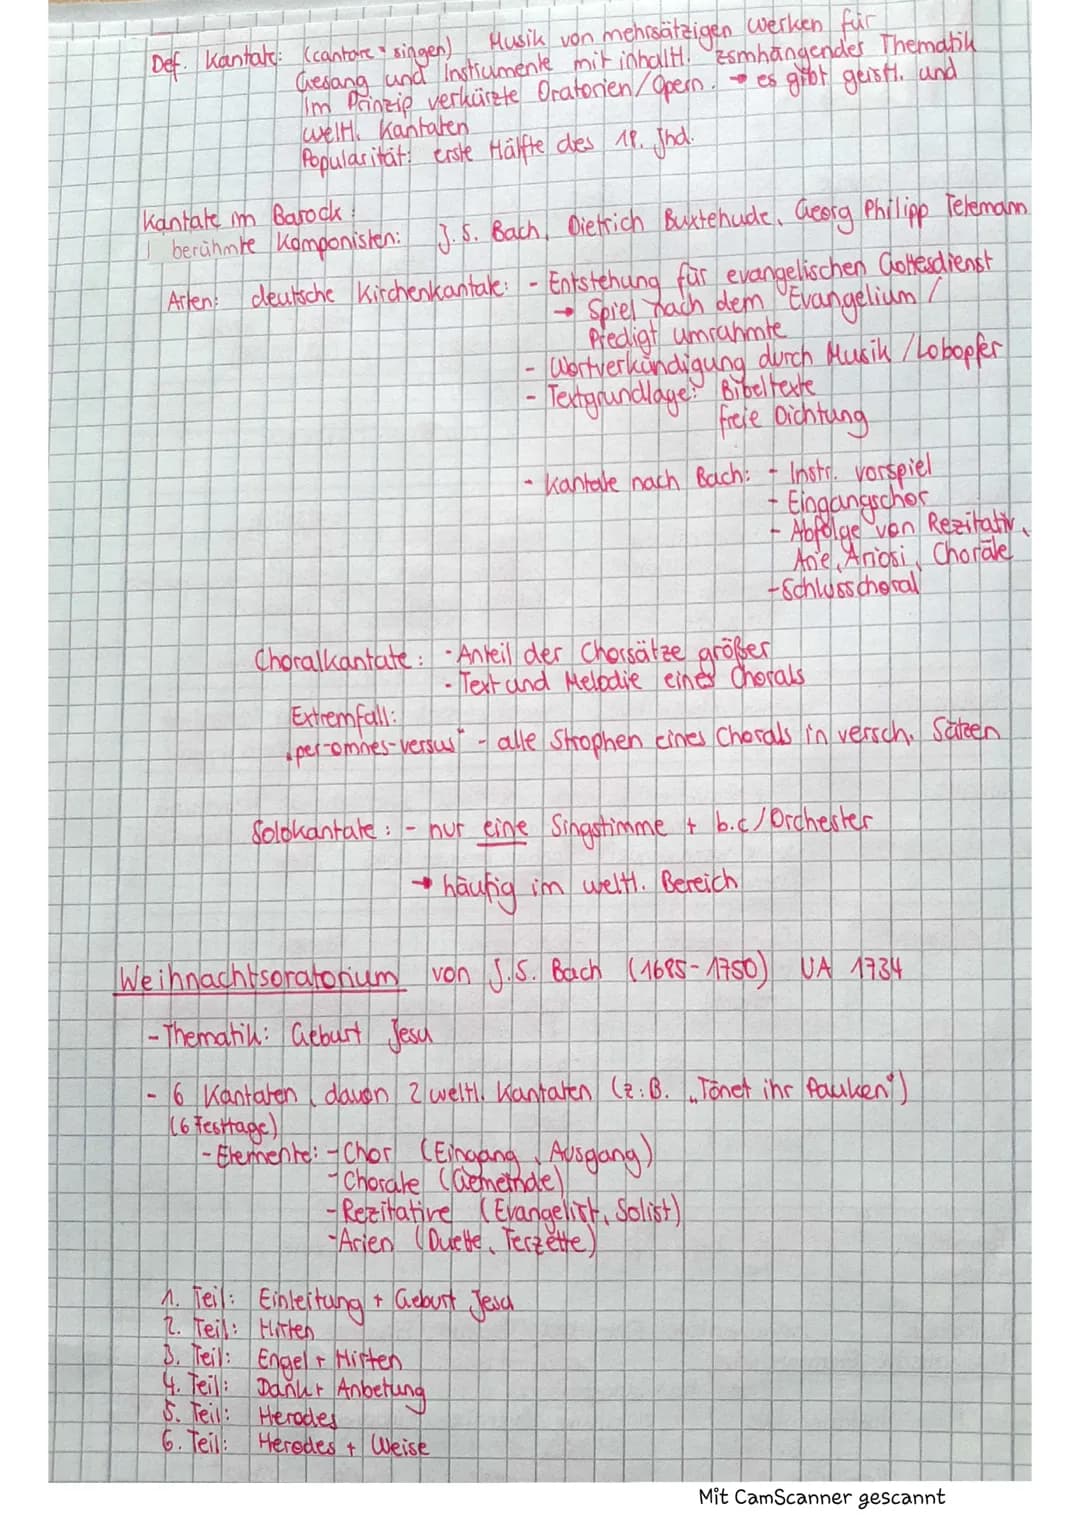 Def. Kantate: (cantare = singen) Musik von mehrsätzigen Werken für
Gesang und Instrumente mit inhaltl. zsmhängender Thematik
Im Prinzip verkürzte Oratorien/Opern. → es gibt geistl. und
weltl. Kantaten
Popularität: erste Hälfte des 18. Jhd.
Kantate im Barock:
berühmte Komponisten: J.S. Bach, Dietrich Buxtehude, Georg Philipp Telemann
Arten: deutsche Kirchenkantate: - Entstehung für evangelischen Gottesdienst
→ Spiel nach dem Evangelium /
Predigt umrahmte
- Wortverkündigung durch Musik /Lobopfer
- Textgrundlage: Bibeltexte
freie Dichtung
- Kantate nach Bach: - Instr. vorspiel
- Eingangschor
- Abfolge von Rezitativ,
Arie, Ariosi, Choräle
- Schlusschoral
Choralkantate: - Anteil der Chorsätze größer
- Text und Melodie eines Chorals
Extremfall:
„per-omnes-versus" - alle Strophen eines Chorals in versch. Sätzen
Solokantate: - nur eine Singstimme + b.c/Orchester
→ häufig im weltl. Bereich
Weihnachtsoratorium von J.S. Bach (1685-1750) UA 1734
- Thematik: Geburt Jesu
- 6 Kantaten, davon 2 weltl. Kantaten (z.B. „Tönet ihr Pauken")
(6 Festtage)
- Elemente: - Chor (Eingang, Ausgang)
- Chorale (Gemeinde)
- Rezitative (Evangelist, Solist)
- Arien (Duette, Terzette)
1. Teil: Einleitung + Geburt Jesu
2. Teil: Hirten
3. Teil: Engel + Hirten
4. Teil: Dank + Anbetung
5. Teil: Herodes
6. Teil: Herodes + Weise
Mit CamScanner gescannt